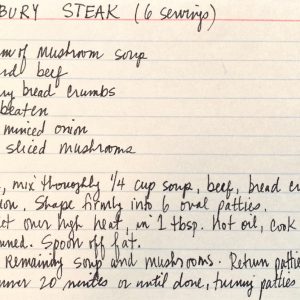 BURY STEAK (6 servings)
m of mushroom soup
nd beef
ry bread crumbs
beaten
minced onion
sliced mushrooms
, mix thoroughly 1/4 cup soup, beef, bread cr
ion. Shape firmly into 6 oval patties.
et over high heat, in 1 tbsp. hot oil, cook
ned. Spoon off fat.
Remaining soup and mushrooms. Return pattie
mmer 20 minutes or until done, turning patties